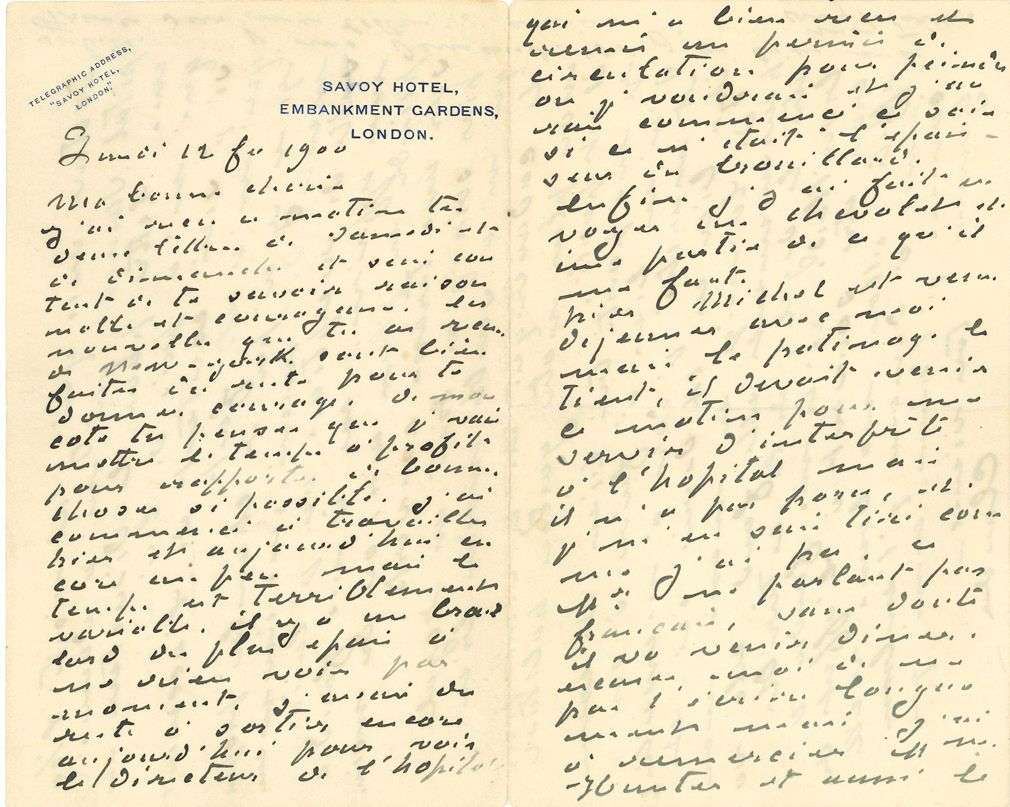 TELEGRAPHIC ADDRESS,
"SAVOY HOTEL,
LONDON."
SAVOY HOTEL,
EMBANKMENT GARDENS,
LONDON.
Lundi 12 fe 1900
Ma bonne cherie
j'ai recu ce matin tes
deux lettres de samedi et
de dimanche et suis con
tent de te savoir raison
nable et courageuse. les
nouvelles que tu as recu
de New-york sont bien
faites du reste pour te
donner courage, de mon
coté tu penses que je vais
mettre le temps à profit
pour rapporter de bonnes
choses si possible. j'ai
commencé à travailler
hier et aujourd'hui en
core un peu mais le
temps est terriblement
variable. il y a un brouil
lard du plus epais à
ne rien voir par
moment, j'avais du
reste à sortir encore
aujourd'hui pour voir
le directeur de l'hopital
qui m'a bien recu et
remis un permis de
circulation pour peindre
ou je voudrais et j'au
rais commencé ce soir
si ce n'était l'epais-
seur du brouillard.
enfin j'y ai fait en
voyer mes chevalets et
une partie de ce qu'il
me faut.
hier Michel est venu
dejeuner avec moi
mais le patinage le
tient, il devait venir
ce matin pour me
servir d'interprête
à l'hopital mais
il n'a pas paru, et
je m'en suis tiré com
me j'ai pu, ce
Mr ne parlant pas
francais, sans doute
il va venir diner.
remercie-moi de ne
pas t'écrire longue
ment mais j'ai
à remercier Mme
Hunter et aussi le